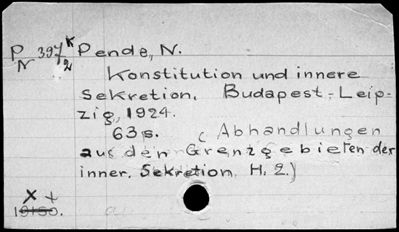 P K
N 397/2 Pende, N.
Konstitution und innere
Sekretion. Budapest-Leip-
zig, 1924.
63 s. (Abhandlungen
aus den Grenzgebieten der
inner. Sekretion. H. 2.)
X +
19150.